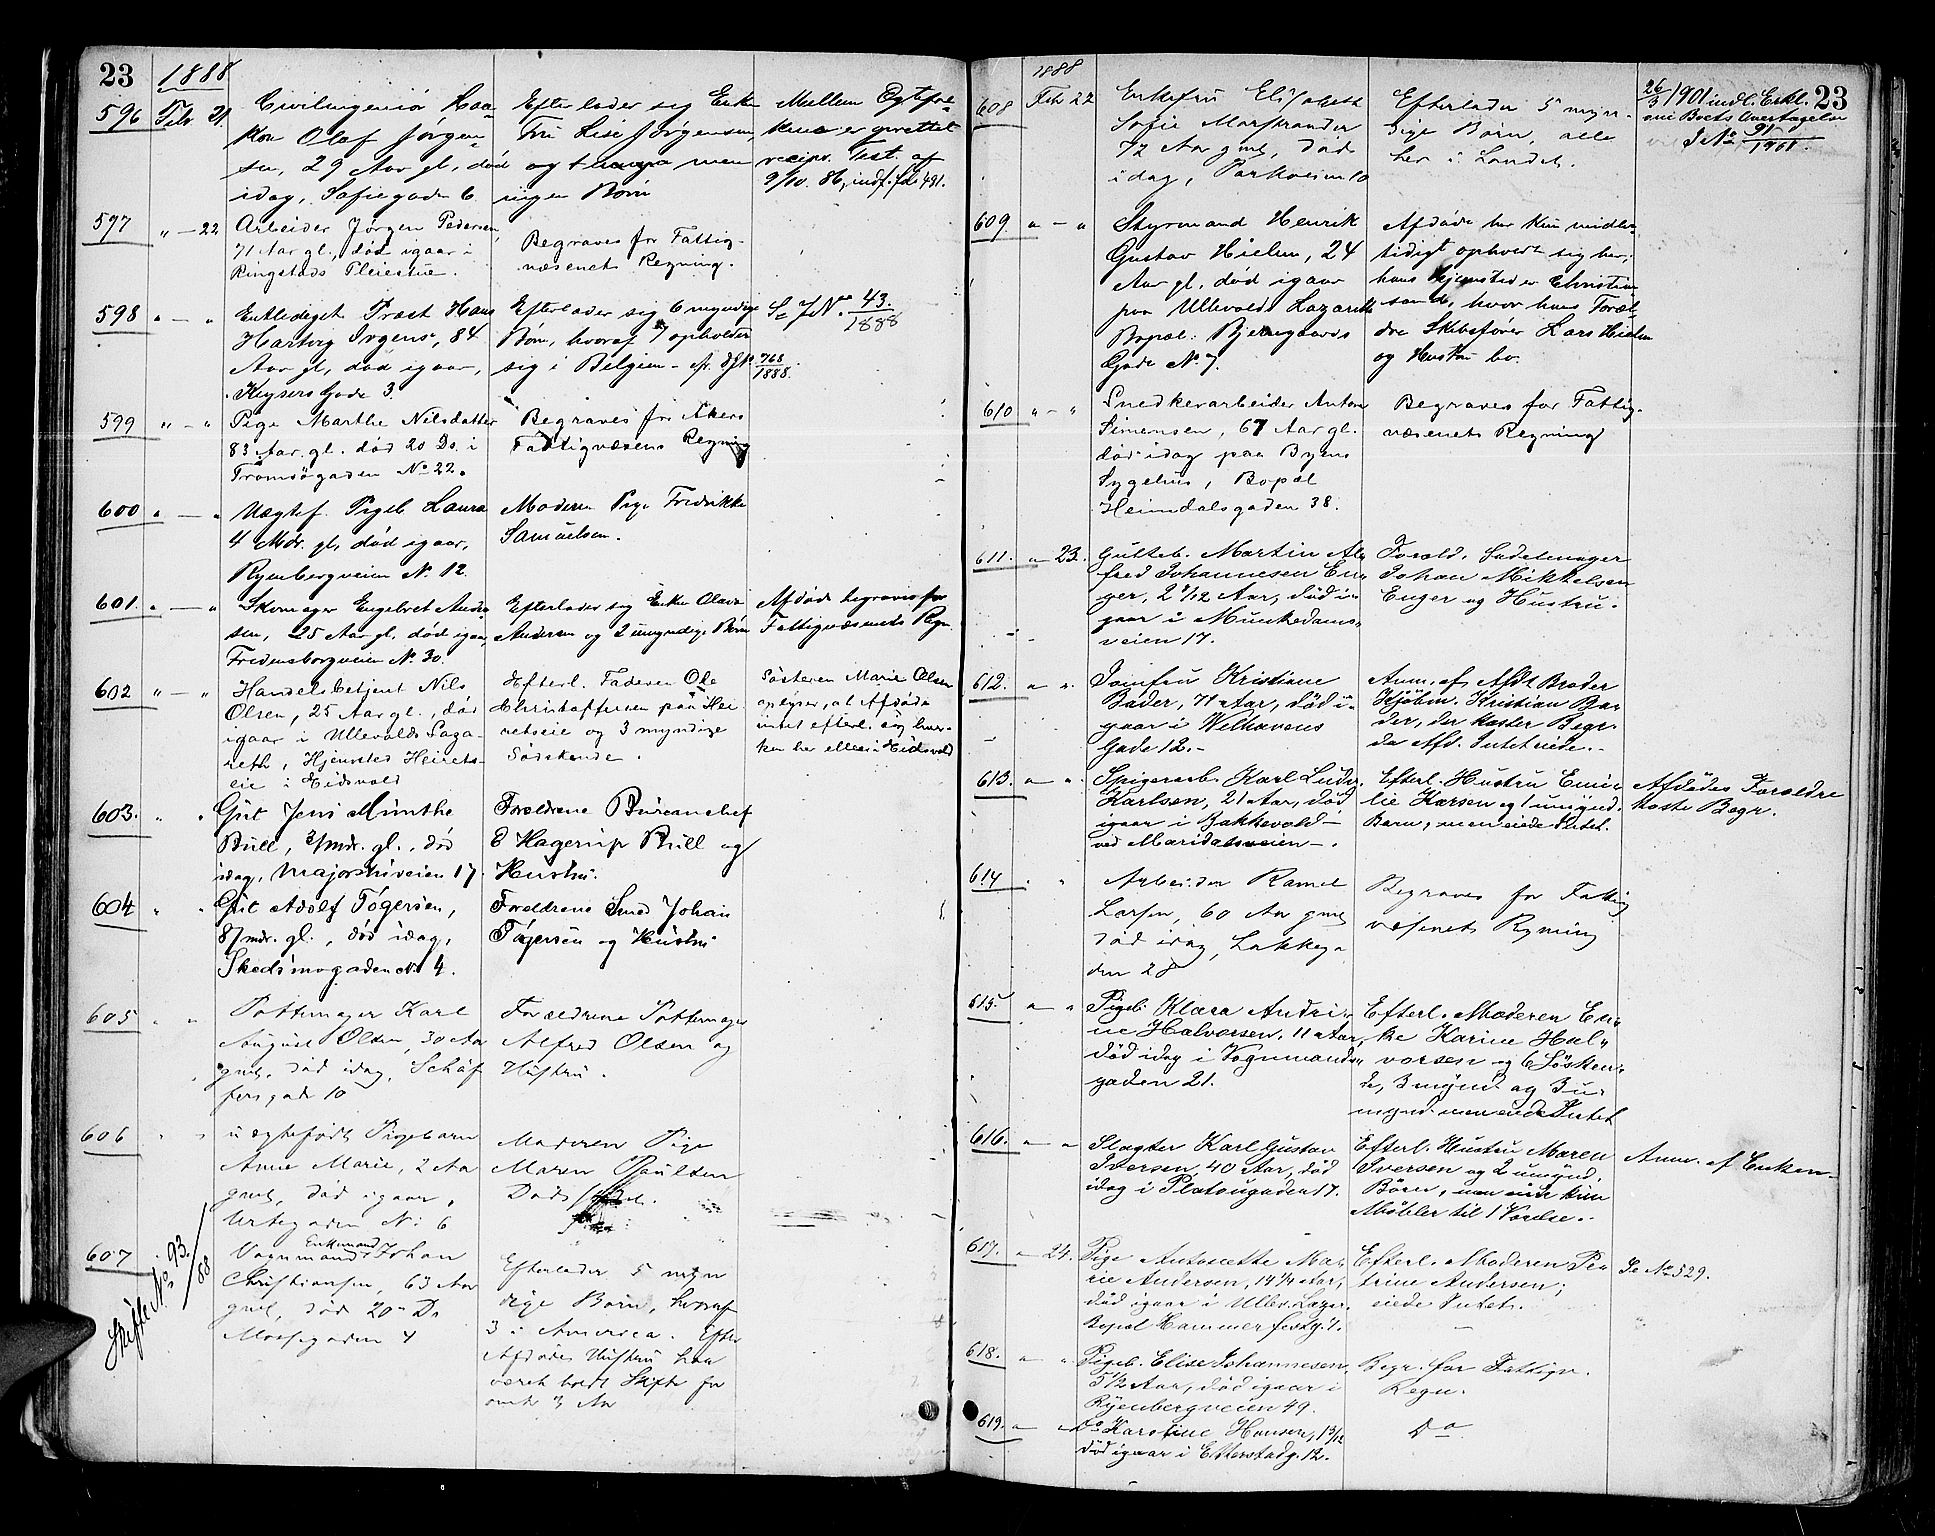 23
1888
596 Febr 21.
Civilingeniør Haa-
kon Olaf Jørgen-
sen, 29 Aar gl, død
idag, Sofiegaden 6.
Efterlader sig Enke
Fru Lise Jørgensen,
og men
ingen Børn
Mellem Ægtefol-
kene er oprettet
recipr. Test. af
9/10. 86, indf. fol 491.
597 " — 22
Arbeider Jørgen Pedersen
71 Aar gl., død igaar i
Ringstads Pleiestue.
Begraves for Fattig-
væsenets Regning.
598 " — "
Entlediget Præst Hans
Hartvig Irgens, 84
Aar gl, død igaar,
Keysers Gade 3.
Efterlader sig 6 myndige
Børn, hvoraf 7 opholder
sig i Belgien - cfr. JNo 768/1888.
Se JNo. 43./1888
599 " — "
Pige Marthe Nilsdatter
83 Aar gl. død 20 Ds. i
Tromsøgaden No 22.
Begraves for Akers
Fattigvæsens Regning
600 " — "
Uægtef. Pigeb. Laura
4 Mdr. gl, død igaar,
Ryenbergveien No. 12.
Moderen Pige Fredrikke
Samuelsen.
601 " — "
Skomager Engebret Ander-
sen, 25 Aar gl. død igaar,
Fredensborgveien No. 30.
Efterlader sig Enke Olava
Andersen og 2 umyndige Børn
Afdøde begraves for
Fattigvæsenets Regn.
602 " — "
Handelsbetjent Nils
Olsen, 25 Aar gl., død
igaar i Ullevolds Laza-
reth, Hjemsted Heirets-
eie i Eidsvold
Efterl. Faderen Ole
Christoffersen paa Hei-
retseie og 3 myndige
Sødskende.
Søsteren Marie Olsen
oplyser, at Afdøde
intet efterl. sig hver-
ken her eller i Eidsvold
603. " "
Gut Jens Munthe
Bull, 3/mdr. gl., død
idag, Majorstuveien 17.
Forældrene Bureauchef
E Hagerup Bull og
Hustru.
604 " "
Gut Adolf Tøgersen,
8/mdr. gl., død idag,
Skedsmogaden No 4.
Forældrene Smed Johan
Tøgersen og Hustru
605 " "
Pottemager Karl
August Olsen, 30 Aar
gml, død idag, Schæf
fersgade 10
Forældrene Pottemager
Alfred Olsen og
Hustru.
606 " "
uægtefødt Pigebarn
Anne Marie, 2 Aar
gml, død igaar,
Urtegaden No: 6
Moderen Pige
Maren Paulsen
607
Skifte No. 93./88
Enkemand
Vognmand Johan
Christiansen, 63 Aar
gml, død 20de Ds
Mossegaden 4
Efterlader 5 myn
dige Børn, hvoraf
3 i America. Efter
Afdødes Hustru har
været holdt Skifte for
omtr 3 Aar
23
1888
608 Febr 22
Enkefru Elisabeth
Sofie Marstrander
72 Aar gml, død
idag, Parkveien 10
Efterlader 5 myn-
dige Børn, alle
her i Landet.
26/3 1901 indl. Erkl.
om Boets Overtagelse
J No 91/1901.
609. " — "
Styrmand Henrik
Gustav Hielm, 24
Aar gl, død igaar
paa Ullevolds Lazareth
Bopæl: Bjerregaards
Gade No. 7.
Afdøde har kun midler-
tidigt opholdt sig her;
hans Hjemsted er Christian
sand, hvor hans Foræl-
dre Skibsfører Lars Hielm
og Hustru bo.
610 " — "
Snedkerarbeider Anton
Simensen, 67 Aar gl.
død idag paa Byens
Sygehus, Bopæl
Heimdalsgaden 38.
Begraves for Fattig-
væsenets Regning
611. " 23.
Gutteb. Martin Al-
fred Johannesen En-
ger, 2 1/12 Aar, død i-
gaar i Munkedams-
veien 17.
Foræld. Sadelmager
Johan Mikkelsen
Enger og Hustru.
612. " "
Jomfru Kristiane
Bader, 71 Aar, død i-
gaar i Welhavens
Gade 12.-
Anm. af Afd's Broder
Kjøbm. Kristian Ba-
der, der koster Begr.
da Afd. Intet eiede.-
613. " "
Spigerarb. Karl Ludv.
Karlsen, 21 Aar, død
igaar i Bakkevold-
ved Maridalsveien-.
Efterl. Hustru Emi-
lie Karsen og 1 umynd.
Barn, men eiede Intet.
Afdødes Forældre
koste Begr.
614 " "
Arbeider Ramel
Larsen, 60 Aar gml
død idag, Lakkega
den 28
Begraves for Fattig
væsenets Regning
615. " "
Pigeb. Klara Andri-
ne Halvorsen, 11 Aar,
død idag i Vognmands-
gaden 21.
Efterl. Moderen En-
ke Karine Hal-
vorsen og 6 Søsken-
de, 3 mynd. og 3 u-
mynd. men eiede Intet
616. " "
Slagter Karl Gustav
Iversen, 40 Aar, død
idag i Platougaden 17.
Efterl. Hustru Maren
Iversen og 2 umynd.
Børn, men eier kun
Møbler til 1 Værelse.-
Anm. af Enken-
617. " 24.
Pige Antonette Ma-
rie Andersen, 14 1/4 Aar,
død igaar i Ullev. Lazar.
Bopæl Hammerfestg. 1.
Efterl. Moderen Pe-
trine Andersen;
eiede Intet.
Se No 529.
618. " "
Pigeb. Elise Johannesen,
5 1/2 Aar, død igaar i
Ryenbergveien 49.
Begr. for Fattigv.
Regn.
619. " "
Do Karoline Hansen, 1 3/12
død igaar i Etterstadg. 12.
Do